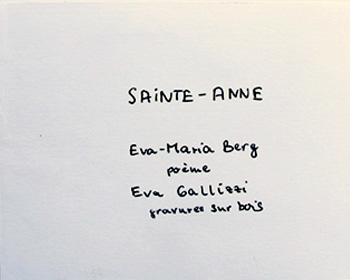 SAiNTE-ANNE
Eva-Maria Berg
poème
Eva Gallizzi
gravures sur bois